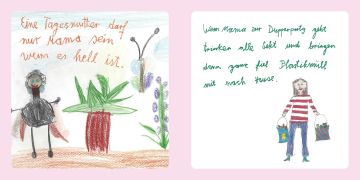 Eine Tagesmutter darf
nur Mama sein
wenn es hell ist.
Wenn Mama zur Tupperparty geht
trinken alle Sekt und bringen
dann ganz viel Plastikmüll
mit nach Hause.